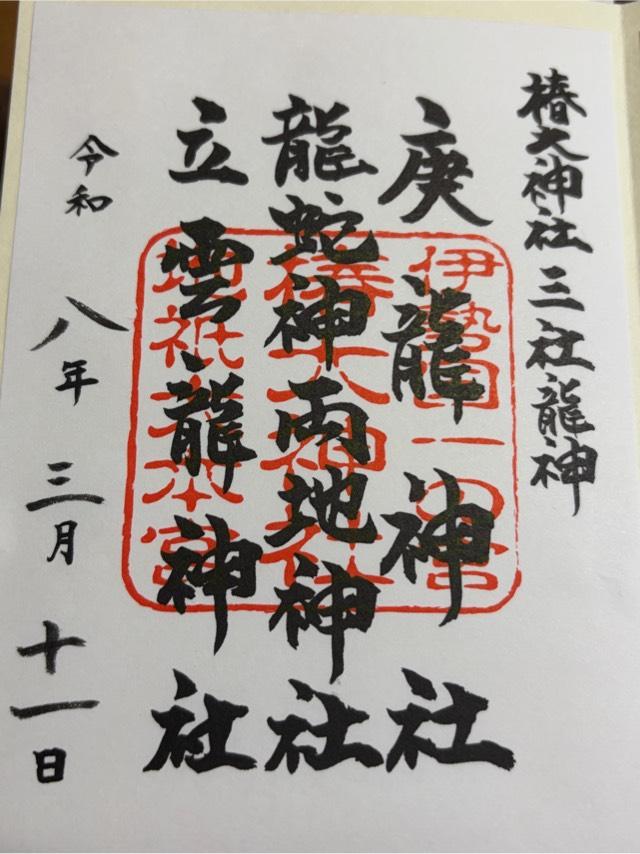 椿大神社 三社龍神
庚龍神社
龍蛇神両地神社
立雲龍神社
令和八年三月十一日
伊勢国一の宮
椿大神社
地祇大本宮